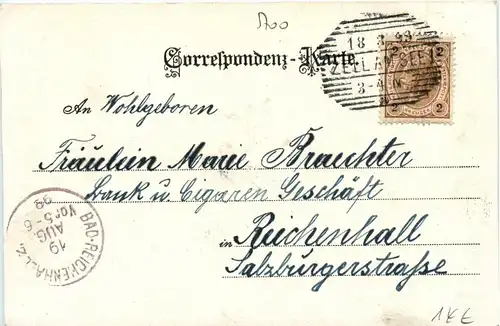 Correspondenz-Karte.
18. 8. 99
ZELL AM SEE
3-4 N
2 2
2 2
An Wohlgeboren
Fräulein Marie Braechter
Bank u Cigaren Geschäft
in Reichenhall
Salzburgerstraße
BAD-REICHENHALL 2.
19
AUG.
Vor. 5-6
99